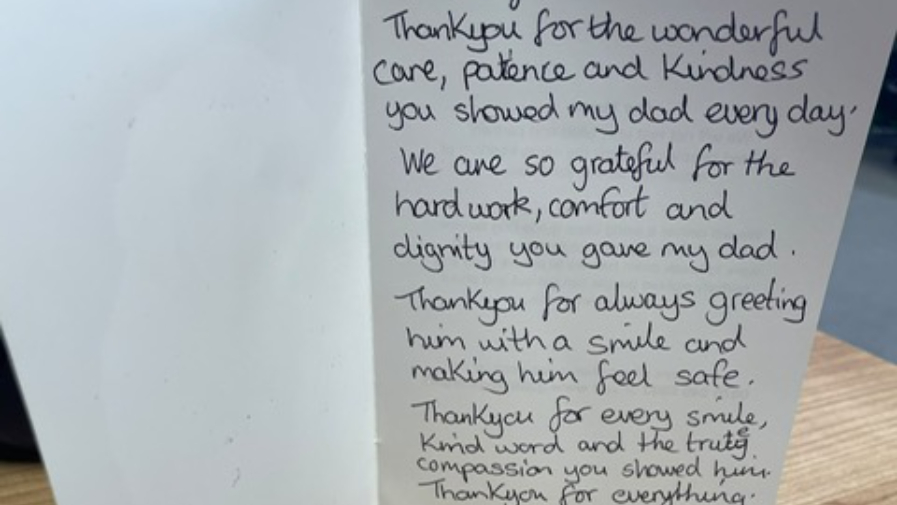 Thankyou for the wonderful
care, patence and Kindness
you showed my dad every day.
We are so grateful for the
hard work, comfort and
dignity you gave my dad.
Thankyou for always greeting
him with a smile and
making him feel safe.
Thankyou for every smile,
Kind word and the
compassion you showed him.
Thankyou for everything.